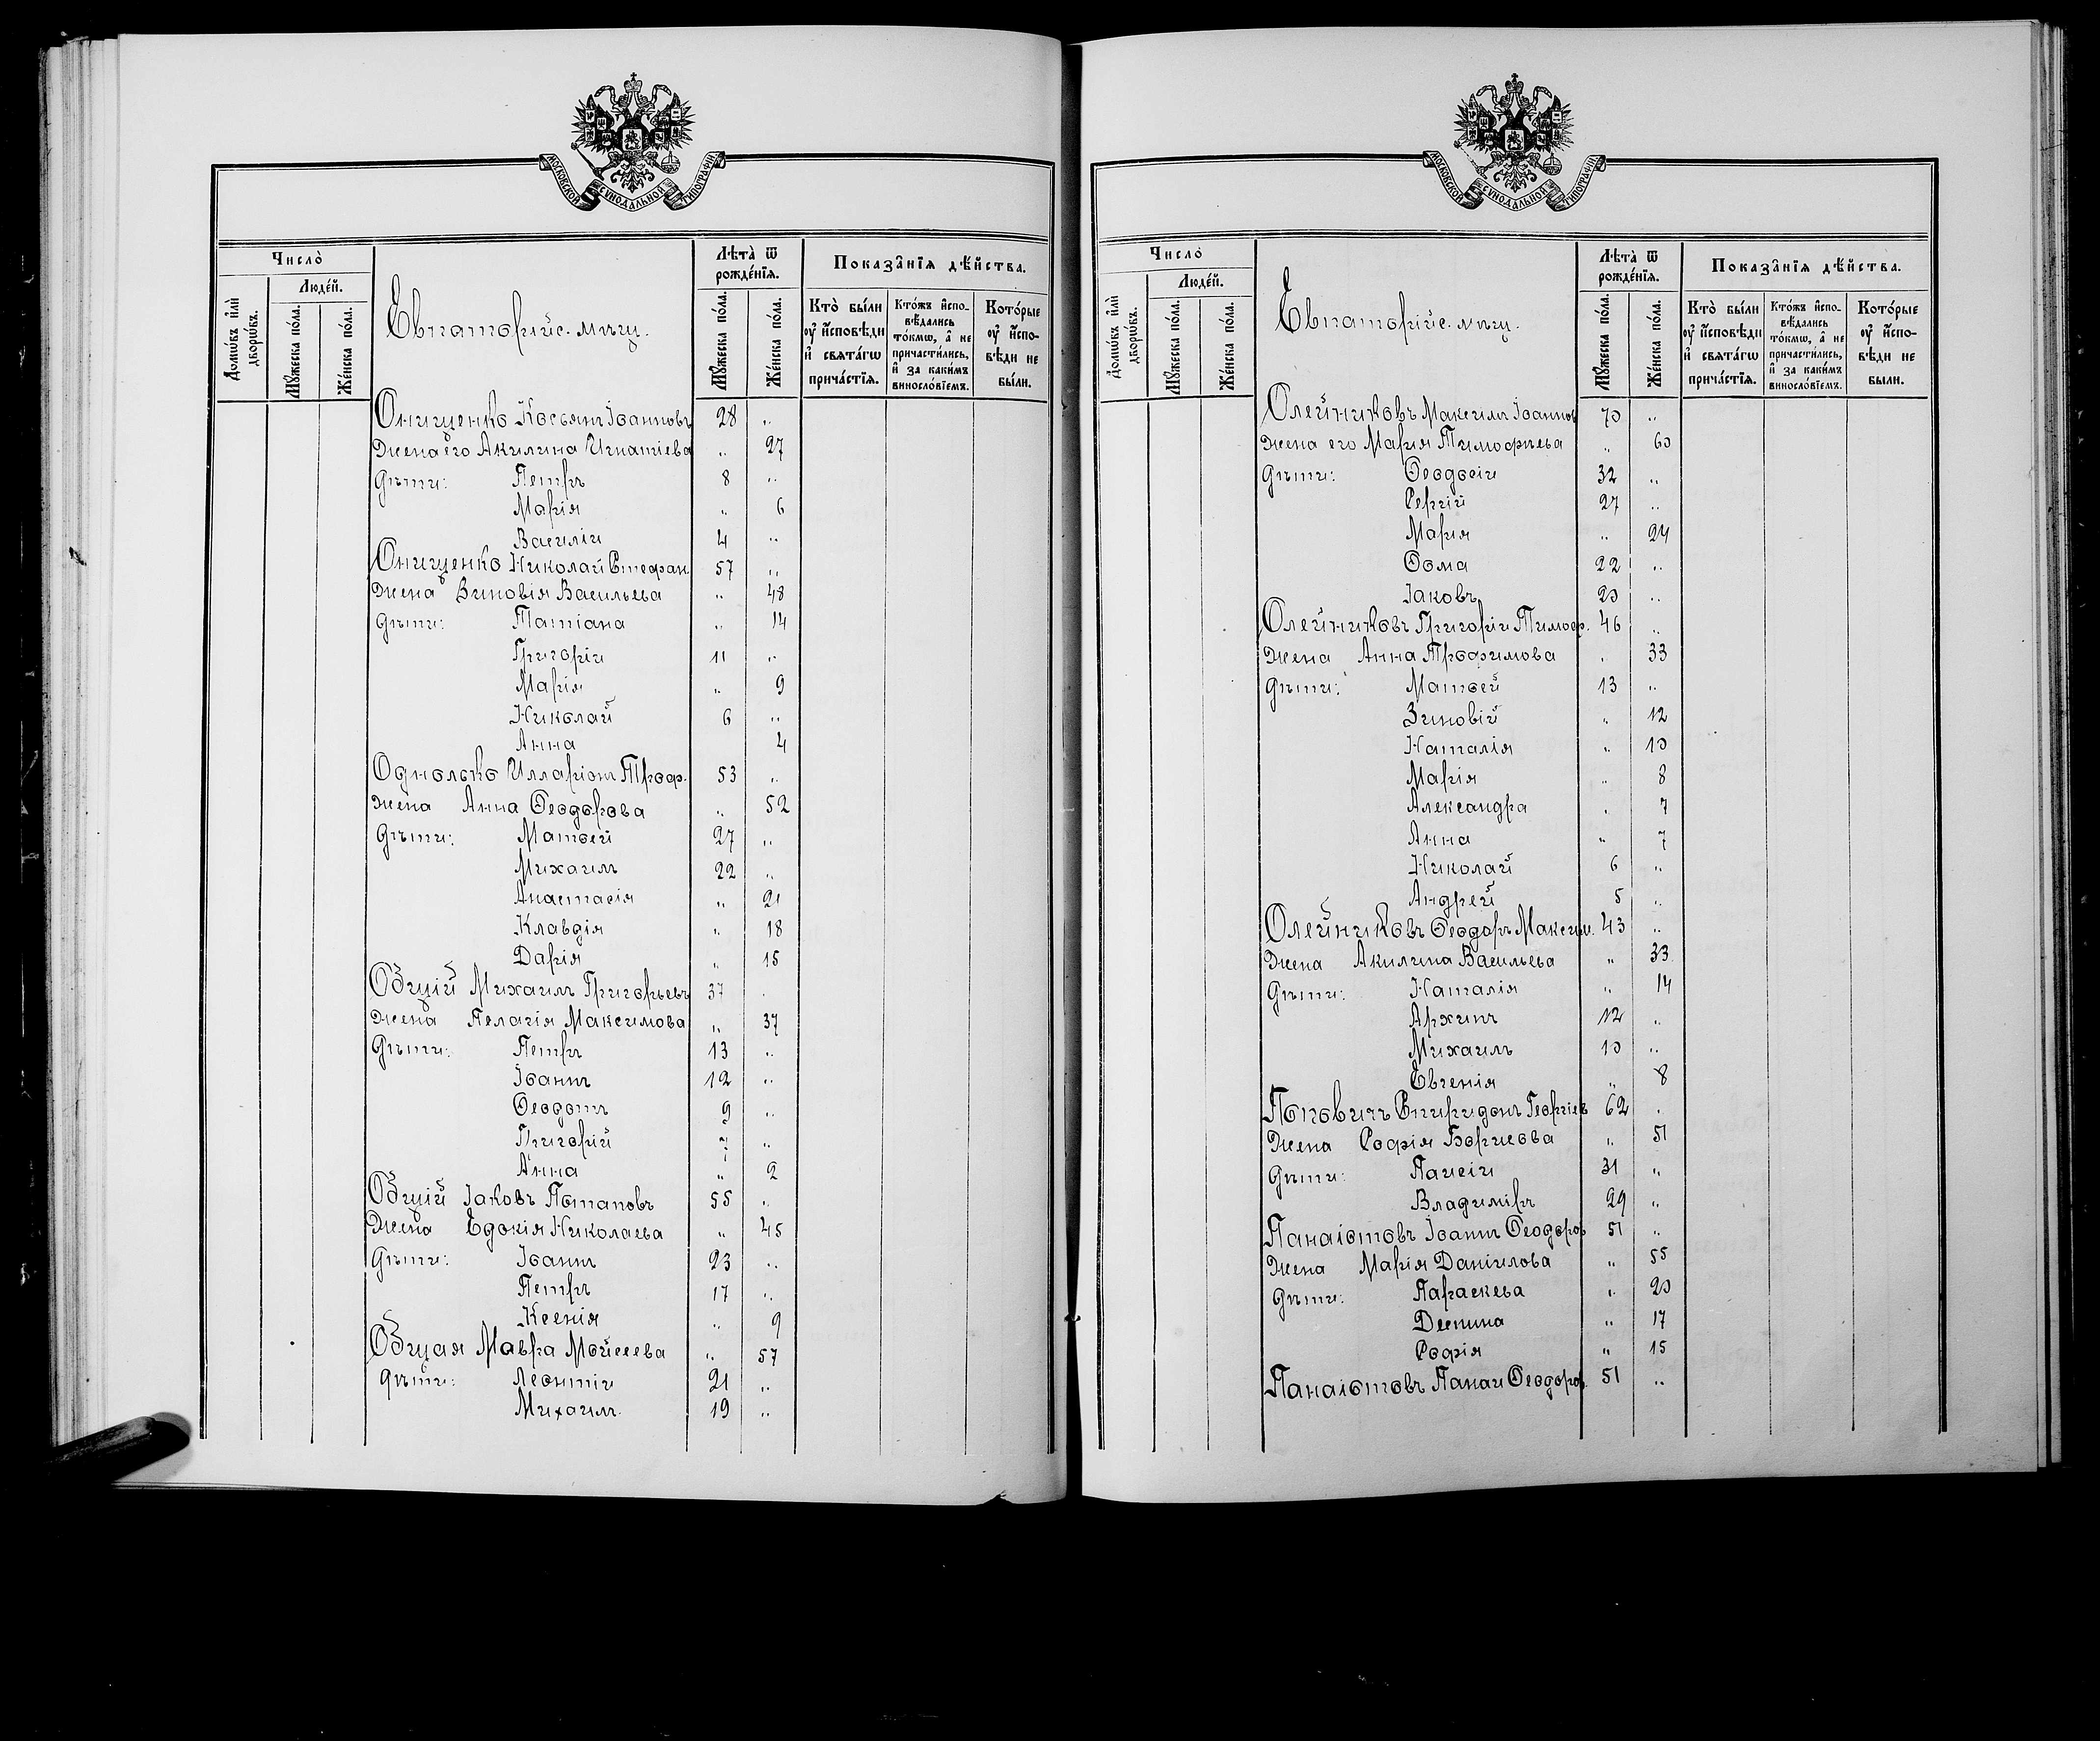 МОСКОВСКОЙ СѴНОДАЛЬНОЙ ТИПОГРАФІИ
Число̀
Людéй.
Домѡ́въ и҆лѝ дворѡ́въ.
Мꙋ́жеска по́ла.
Же́нска по́ла.
Евпаторійс. мѣщ.
Лѣта̀ ѿ рожде́нїѧ.
Мꙋ́жеска по́ла.
Же́нска по́ла.
Показа̑нїѧ дѣ́йства.
Кто̀ бы́ли ᲂу҆ и҆спо́вѣди и҆ свѧта́гѡ прича́стїѧ.
Кто́жъ и҆спо-вѣ́дались то́кмѡ, а҆ не причасти́лись, и҆ за каки́мъ виносло́вїемъ.
Кото́рые ᲂу҆ и҆спо-вѣди не бы́ли.
Онищенко Косьянъ Іоанновъ 28 "
Жена его Акилина Игнатіева " 27
Дѣти: Петръ 8 "
Марія " 6
Василій 4 "
Онищенко Николай Стефан 57 "
Жена Зиновія Васильева " 48
Дѣти: Татіана " 14
Григорій 11 "
Марія " 9
Николай 6 "
Анна 4
Однолько Илларіонъ Троф. 53 "
Жена Анна Ѳеодорова " 52
Дѣти: Матѳей 27 "
Михаилъ 22 "
Анастасія " 21
Клавдія " 18
Дарія " 15
Общій Михаилъ Григорьевъ 37 "
Жена Пелагія Максимова " 37
Дѣти: Петръ 13 "
Іоаннъ 12 "
Ѳеодотъ 9 "
Григорій 7 "
Анна " 2
Общій Іаковъ Потаповъ 55 "
Жена Едокія Николаева " 45
Дѣти: Іоаннъ 23 "
Петръ 17 "
Ксенія " 9
Общая Мавра Мойсеева " 57
дѣти: Леонтій 21 "
Михаилъ 19 "
МОСКОВСКОЙ СѴНОДАЛЬНОЙ ТИПОГРАФІИ
Число̀
Людéй.
Домѡ́въ и҆лѝ дворѡ́въ.
Мꙋ́жеска по́ла.
Же́нска по́ла.
Евпаторійс. мѣщ.
Лѣта̀ ѿ рожде́нїѧ.
Мꙋ́жеска по́ла.
Же́нска по́ла.
Показа̑нїѧ дѣ́йства.
Кто̀ бы́ли ᲂу҆ и҆спо́вѣди и҆ свѧта́гѡ прича́стїѧ.
Кто́жъ и҆спо-вѣ́дались то́кмѡ, а҆ не причасти́лись, и҆ за каки́мъ виносло́вїемъ.
Кото́рые ᲂу҆ и҆спо-вѣди не бы́ли.
Олейниковъ Максимъ Іоаннов 70 "
Жена его Марія Тимофѣева " 60
Дѣти: Ѳеодосій 32 "
Сергій 27 "
Марія " 24
Ѳома 22 "
Іаковъ 20 "
Олейниковъ Григорій Тимоф. 46 "
Жена Анна Трофимова " 33
Дѣти: Матѳей 13 "
Зиновій " 12
Наталія " 10
Марія " 8
Александра " 7
Анна " 7
Николай 6 "
Андрей 5 "
Олейниковъ Ѳеодоръ Максим. 43 "
Жена Акилина Васильева " 33
Дѣти: Наталія " 14
Архипъ 12 "
Михаилъ 10 "
Евгенія " 8
Поповичъ Спиридонъ Георгіев 62 "
Жена Софія Борисова " 51
Дѣти: Паисій 31 "
Владиміръ 29 "
Панаіотовъ Іоаннъ Ѳеодоров 51 "
Жена Марія Даніилова " 55
Дѣти: Параскева " 20
Деспина " 17
Софія " 15
Панаіотовъ Панаи Ѳеодоров 51 "